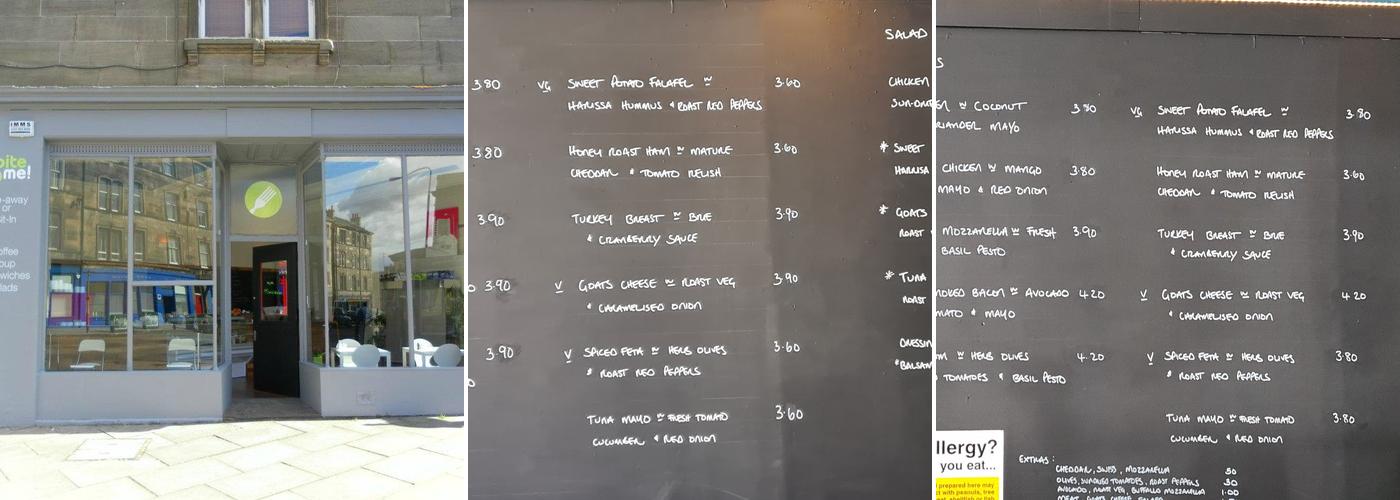 IMMS
bite
me!
e-away
or
sit-In
coffee
oup
dwiches
lads
3.80 VG SWEET POTATO FALAFEL W 3.60
HARISSA HUMMUS + ROAST RED PEPPERS
3.80 HONEY ROAST HAM W MATURE 3.60
CHEDDAR + TOMATO RELISH
3.90 TURKEY BREAST W BRIE 3.90
+ CRANBERRY SAUCE
3.90 V GOATS CHEESE W ROAST VEG 3.90
+ CARAMELISED ONION
3.90 V SPICED FETA W HERB OLIVES 3.60
+ ROAST RED PEPPERS
TUNA MAYO W FRESH TOMATO 3.60
CUCUMBER + RED ONION
SALAD
CHICKEN
SUN-DR
* SWEET
HARISSA
* GOATS
ROAST
* TUNA
ROAST
DRESSIN
*BALSAM
S
EN W COCONUT 3.80
RIANDER MAYO
CHICKEN W MANGO 3.80
MAYO + RED ONION
MOZZARELLA W FRESH 3.90
BASIL PESTO
MOKED BACON W AVOCADO 4.20
MATO + MAYO
W HERB OLIVES 4.20
TOMATOES + BASIL PESTO
VG SWEET POTATO FALAFEL W 3.80
HARISSA HUMMUS + ROAST RED PEPPERS
HONEY ROAST HAM W MATURE 3.60
CHEDDAR + TOMATO RELISH
TURKEY BREAST W BRIE 3.90
+ CRANBERRY SAUCE
V GOATS CHEESE W ROAST VEG 4.20
+ CARAMELISED ONION
V SPICED FETA W HERB OLIVES 3.80
+ ROAST RED PEPPERS
TUNA MAYO W FRESH TOMATO 3.80
CUCUMBER + RED ONION
llergy?
you eat...
prepared here may
ct with peanuts, tree
EXTRAS:
CHEDDAR, SWISS, MOZZARELLA 50
OLIVES, SUNDRIED TOMATOES, ROAST PEPPERS 50
AVOCADO, ROAST VEG, BUFFALO MOZZARELLA 1.00